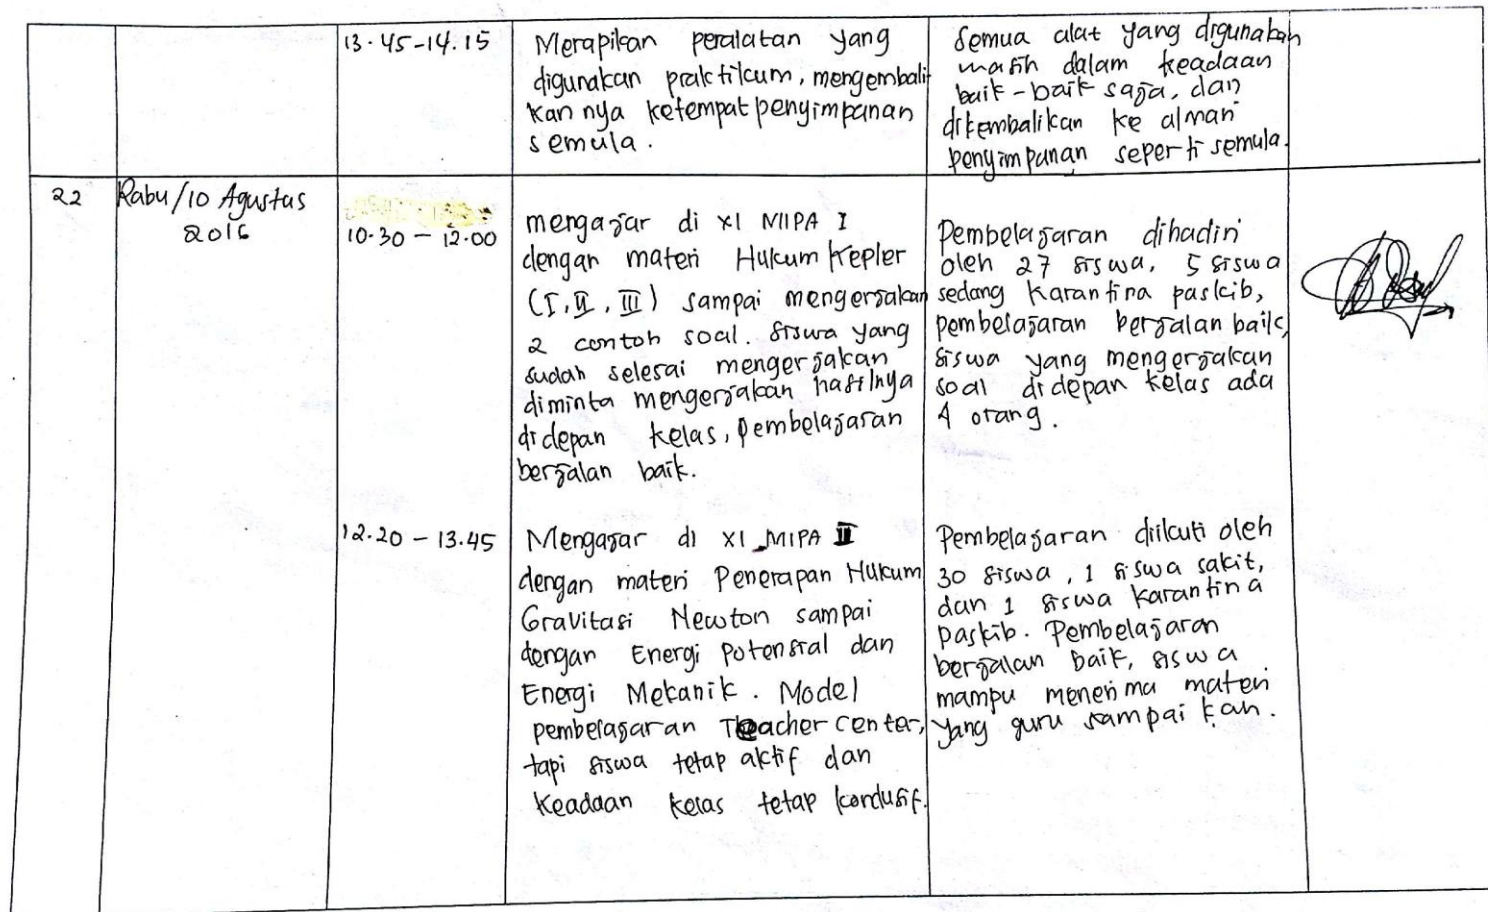 13.45-14.15
Merapikan peralatan yang
digunakan praktikum, mengembali
kan nya ketempat penyimpanan
semula.
Semua alat yang digunakan
masih dalam keadaan
baik-baik saja, dan
dikembalikan ke almari
penyimpanan seperti semula.
22
Rabu/10 Agustus
2016
10.30 - 12.00
mengajar di XI MIPA I
dengan materi Hukum Kepler
(I, II, III) sampai mengerjakan
2 contoh soal. Siswa yang
sudah selesai mengerjakan
diminta mengerjakan hasilnya
didepan kelas, pembelajaran
berjalan baik.
Pembelajaran dihadiri
oleh 27 siswa, 5 siswa
sedang karantina paskib,
pembelajaran berjalan baik,
siswa yang mengerjakan
soal didepan kelas ada
4 orang.
12.20 - 13.45
Mengajar di XI MIPA II
dengan materi Penerapan Hukum
Gravitasi Newton sampai
dengan Energi Potensial dan
Energi Mekanik. Model
pembelajaran Teacher center,
tapi siswa tetap aktif dan
keadaan kelas tetap kondusif.
Pembelajaran diikuti oleh
30 siswa, 1 siswa sakit,
dan 1 siswa karantina
paskib. Pembelajaran
berjalan baik, siswa
mampu menerima materi
yang guru sampaikan.